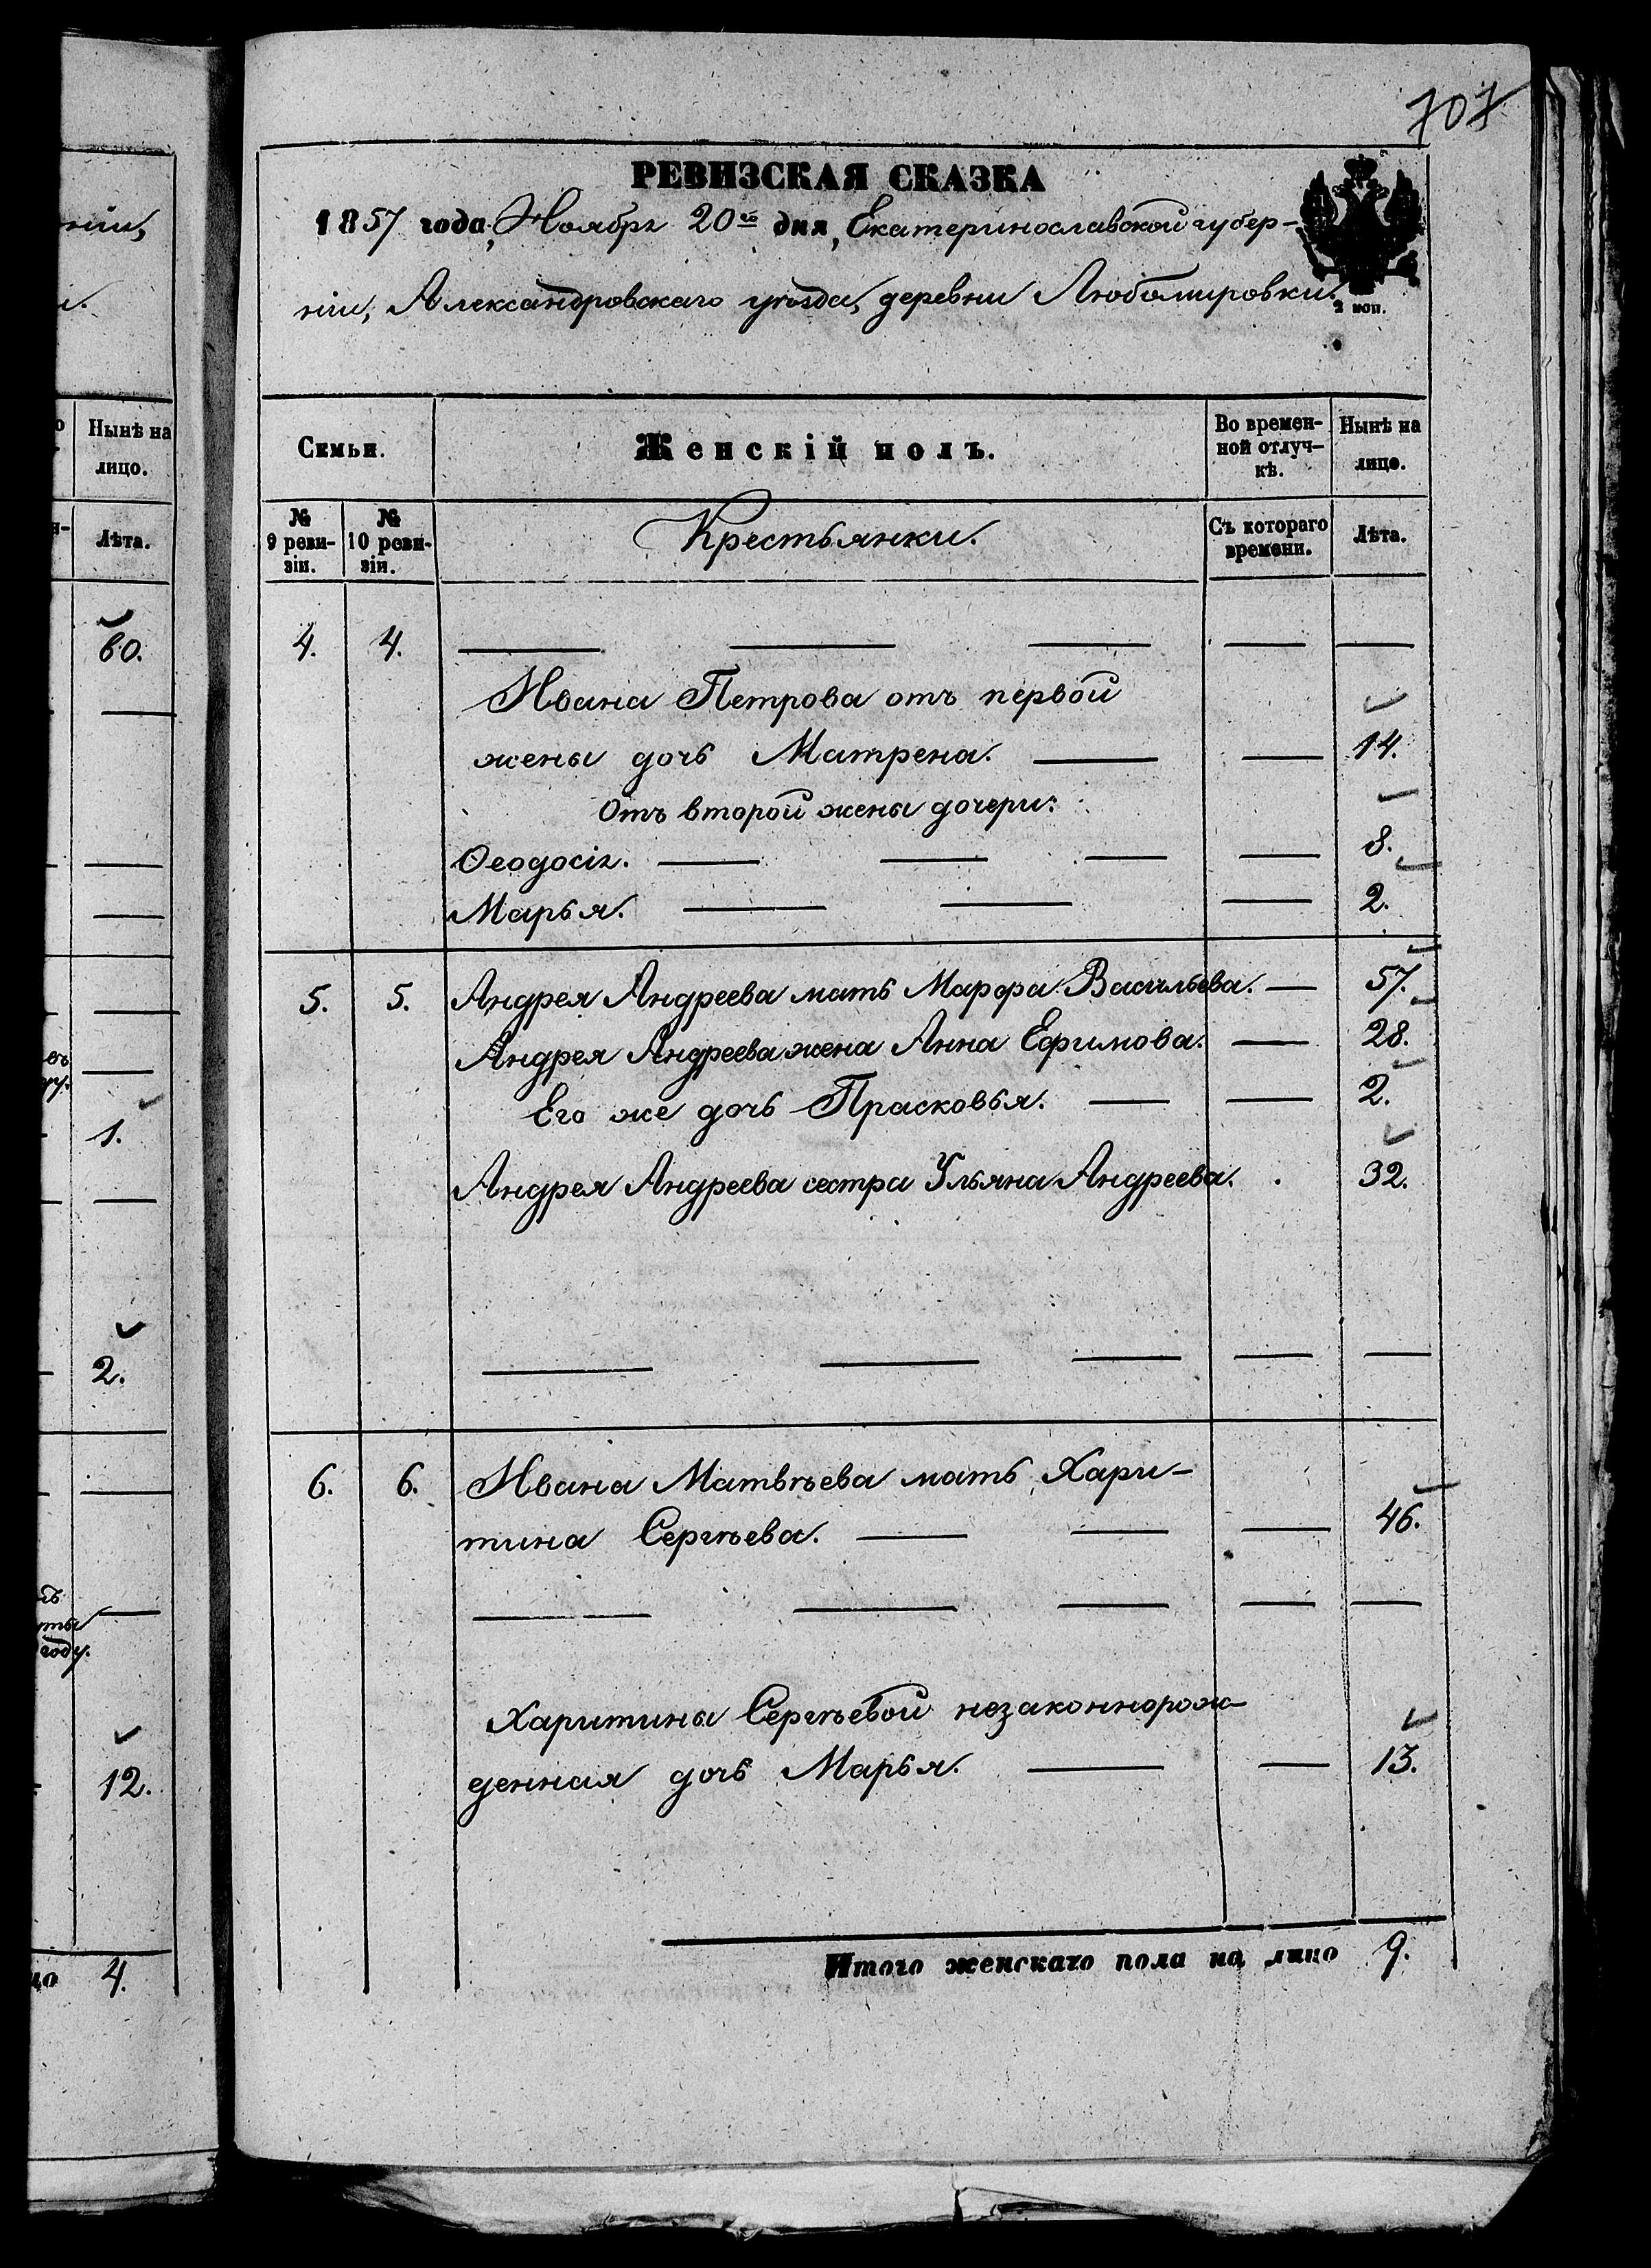 707
РЕВИЗСКАЯ СКАЗКА
1857 года, Ноября 20го дня, Екатеринославской губер-
ніи, Александровскаго уѣзда, деревни Любомировки.
2 коп.
Семьи.
Женскій полъ.
Во времен-
ной отлуч-
кѣ.
Нынѣ на
лицо.
№
9 реви-
зіи.
№
10 реви-
зіи.
Крестьянки.
Съ котораго
времени.
Лѣта.
4. 4.
Ивана Петрова отъ первой
жены дочь Матрена. 14.
Отъ второй жены дочери:
Ѳеодосія. 8.
Марья. 2.
5. 5. Андрея Андреева мать Марфа Васильева. 57.
Андрея Андреева жена Анна Ефимова. 28.
Его же дочь Прасковья. 2.
Андрея Андреева сестра Ульяна Андреева. 32.
6. 6. Ивана Матвѣева мать Хари-
тина Сергѣева. 46.
Харитины Сергѣевой незаконнорож-
денная дочь Марья. 13.
Итого женскаго пола на лицо 9.
Нынѣ на
лицо.
Лѣта.
60.
1.
2.
году.
12.
4.